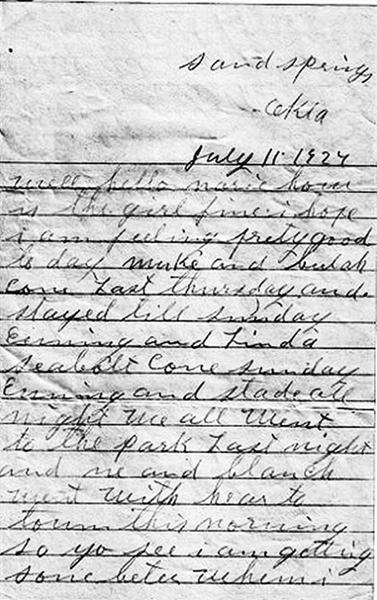 sand springs
okla
July 11 1927
well hello marie how
is the girl fine i hope
i am feeling prety good
to day mike and bulah
come Last thursday and
stayed till sunday
Eivning and Linda
seabolt Come sunday
Eivning and stade all
night we all went
to the park Last night
and me and blanch
went with hear to
town this morning
so yo see i am getting
some beter when i